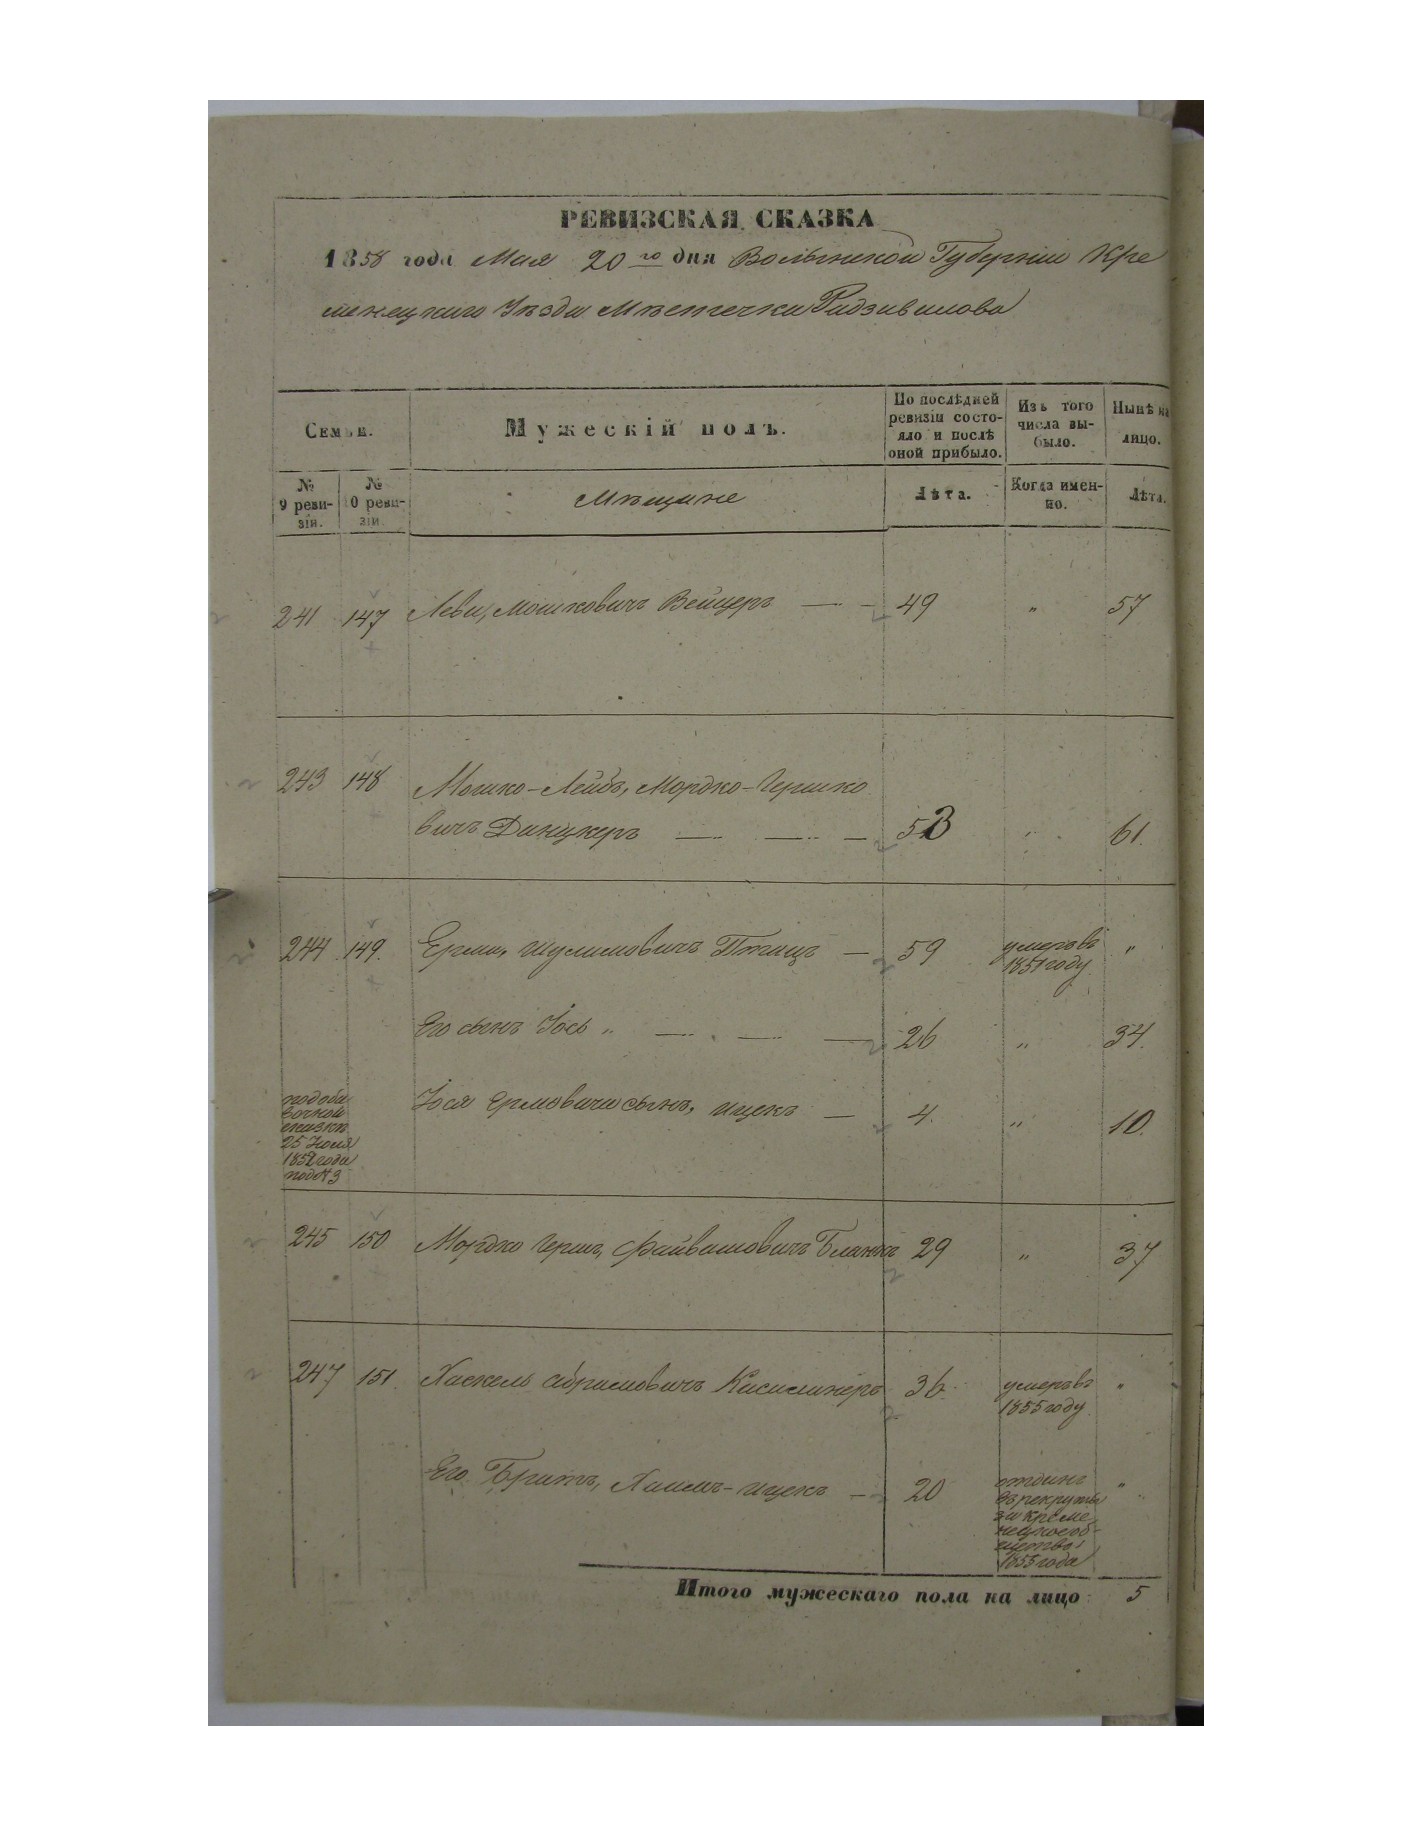 РЕВИЗСКАЯ СКАЗКА
1858 года Мая 20го дня Волынской Губерніи Кре
менецкаго Уѣзда Мѣстечка Радзивилова
Семьи.
Мужескій полъ.
По послѣдней ревизіи состо-
яло и послѣ оной прибыло.
Изъ того числа вы-
было.
Нынѣ на лицо.
№ 9 реви-
зіи.
№ 10 реви-
зіи.
Мѣщане
Лѣта.
Когда имен-
но.
Лѣта.
241 147 Леви, Мошковичъ Вейцеръ — - 49 " 57
243 148 Мошко-Лейбъ, Мордко-Гершко
вичъ Данцкеръ — — — 53 " 61.
244 149. Ерма, Шулимовичъ Птицъ — 59 умеръ въ "
1851 году
Его сынъ Іось " — — — 26 " 34.
Іося Ермовича сынъ, Ицекъ — 4. " 10.
подоба
вочной
сказкѣ
25 Іюля
1852 года
под № 3
245 150 Мордко Герш, Файвишовичъ Бланкъ 29 " 37
247 151. Хаскель Абрамовичъ 36. умеръ въ "
1855 году
Его Братъ, Хаимъ-Ицекъ — 20 отданъ "
въ рекруты
за Креме
нецкое об-
щество
1855 года
Итого мужескаго пола на лицо 5